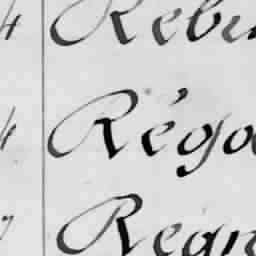 4 Rebu
4 Régo
7 Regn